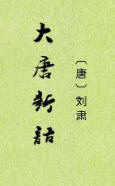 大唐新語
〔唐〕刘肃